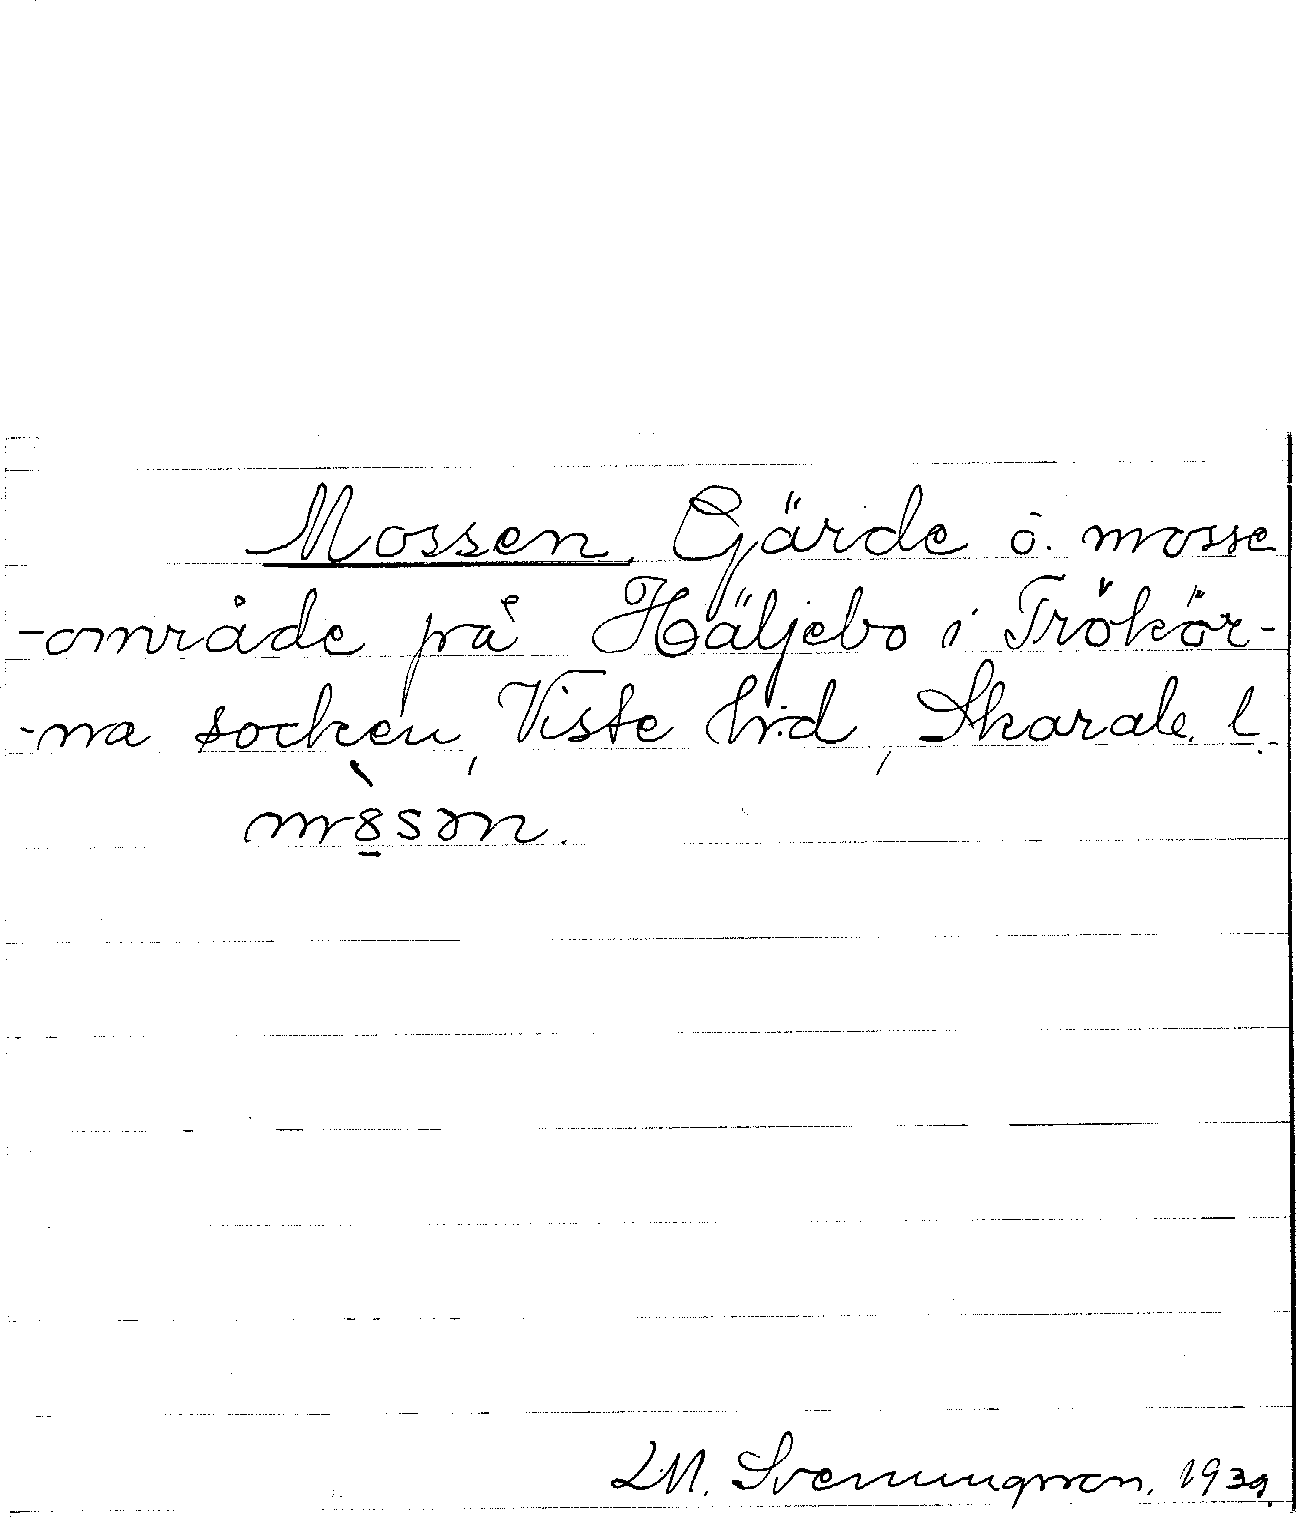 Mossen. Gärde o. mosse
-område på Häljebo i Trökör-
-na socken, Viste hrd, Skarab. l.
m8̱̀sən.
L M. Svenungsson. 1939.